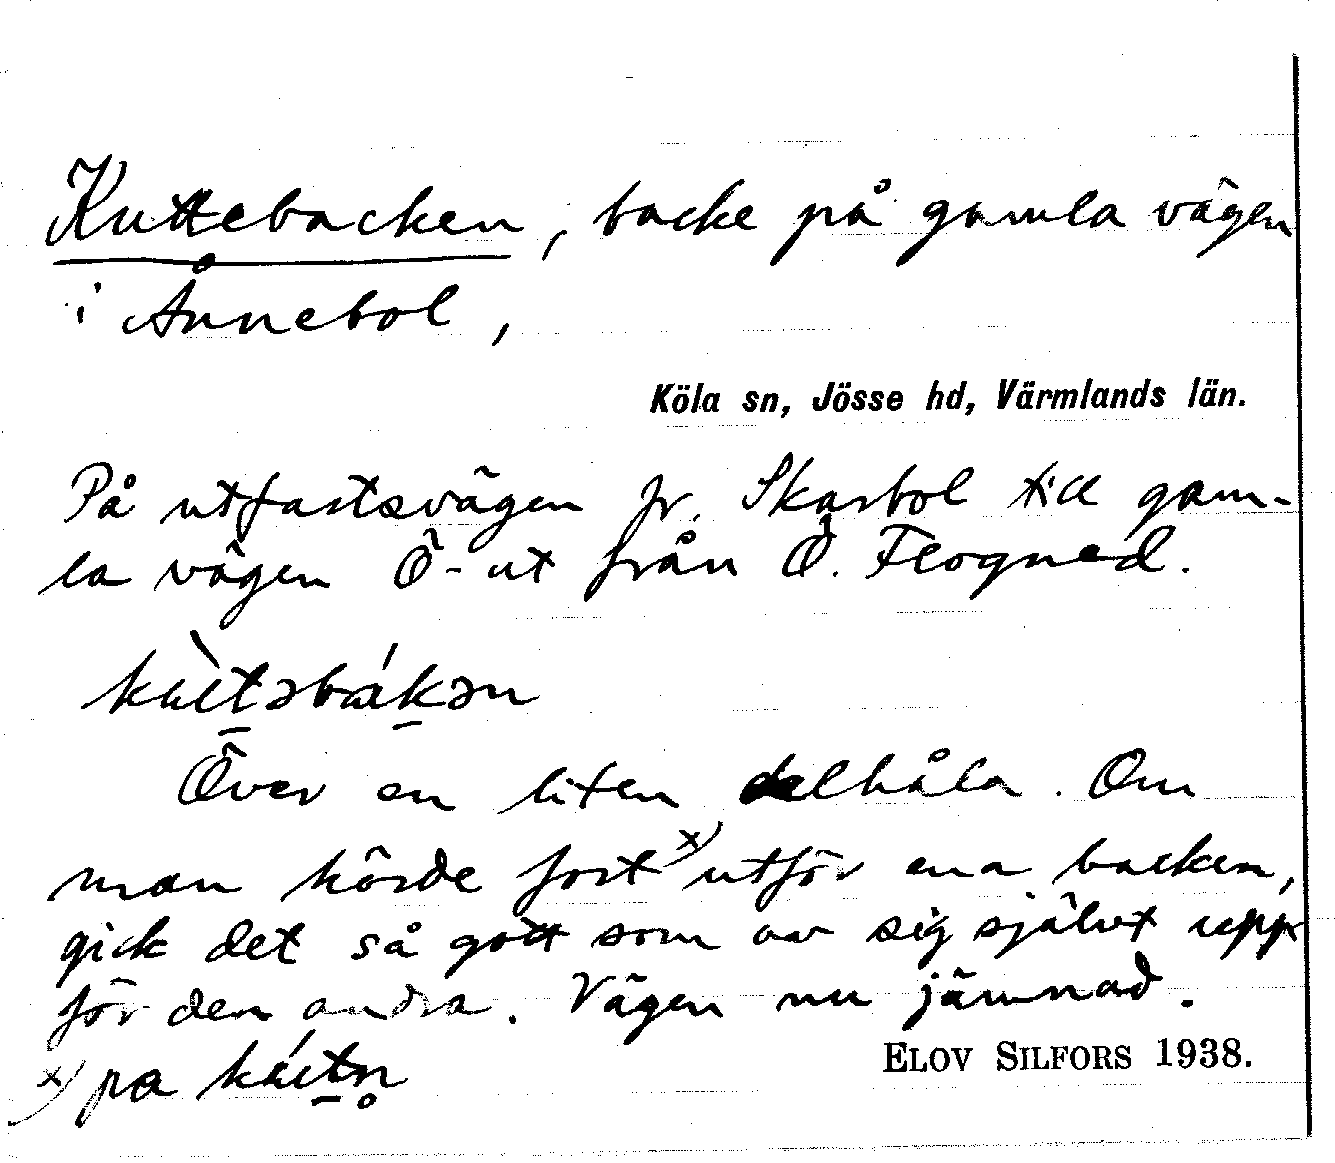 Kuttebacken, backe på gamla vägen
i Ånnebol,
Köla sn, Jösse hd, Värmlands län.
På utfartsvägen fr. Skarbol till gam-
la vägen Ö-ut från Ö. Flogned.
kùt̠əbák̠ən
Över en liten dalhåla. Om
man körde fort x) utför ena backen,
gick det så gott som av sig självt upp
för den andra. Vägen nu jämnad.
x) pa kút̠n̥
ELOV SILFORS 1938.